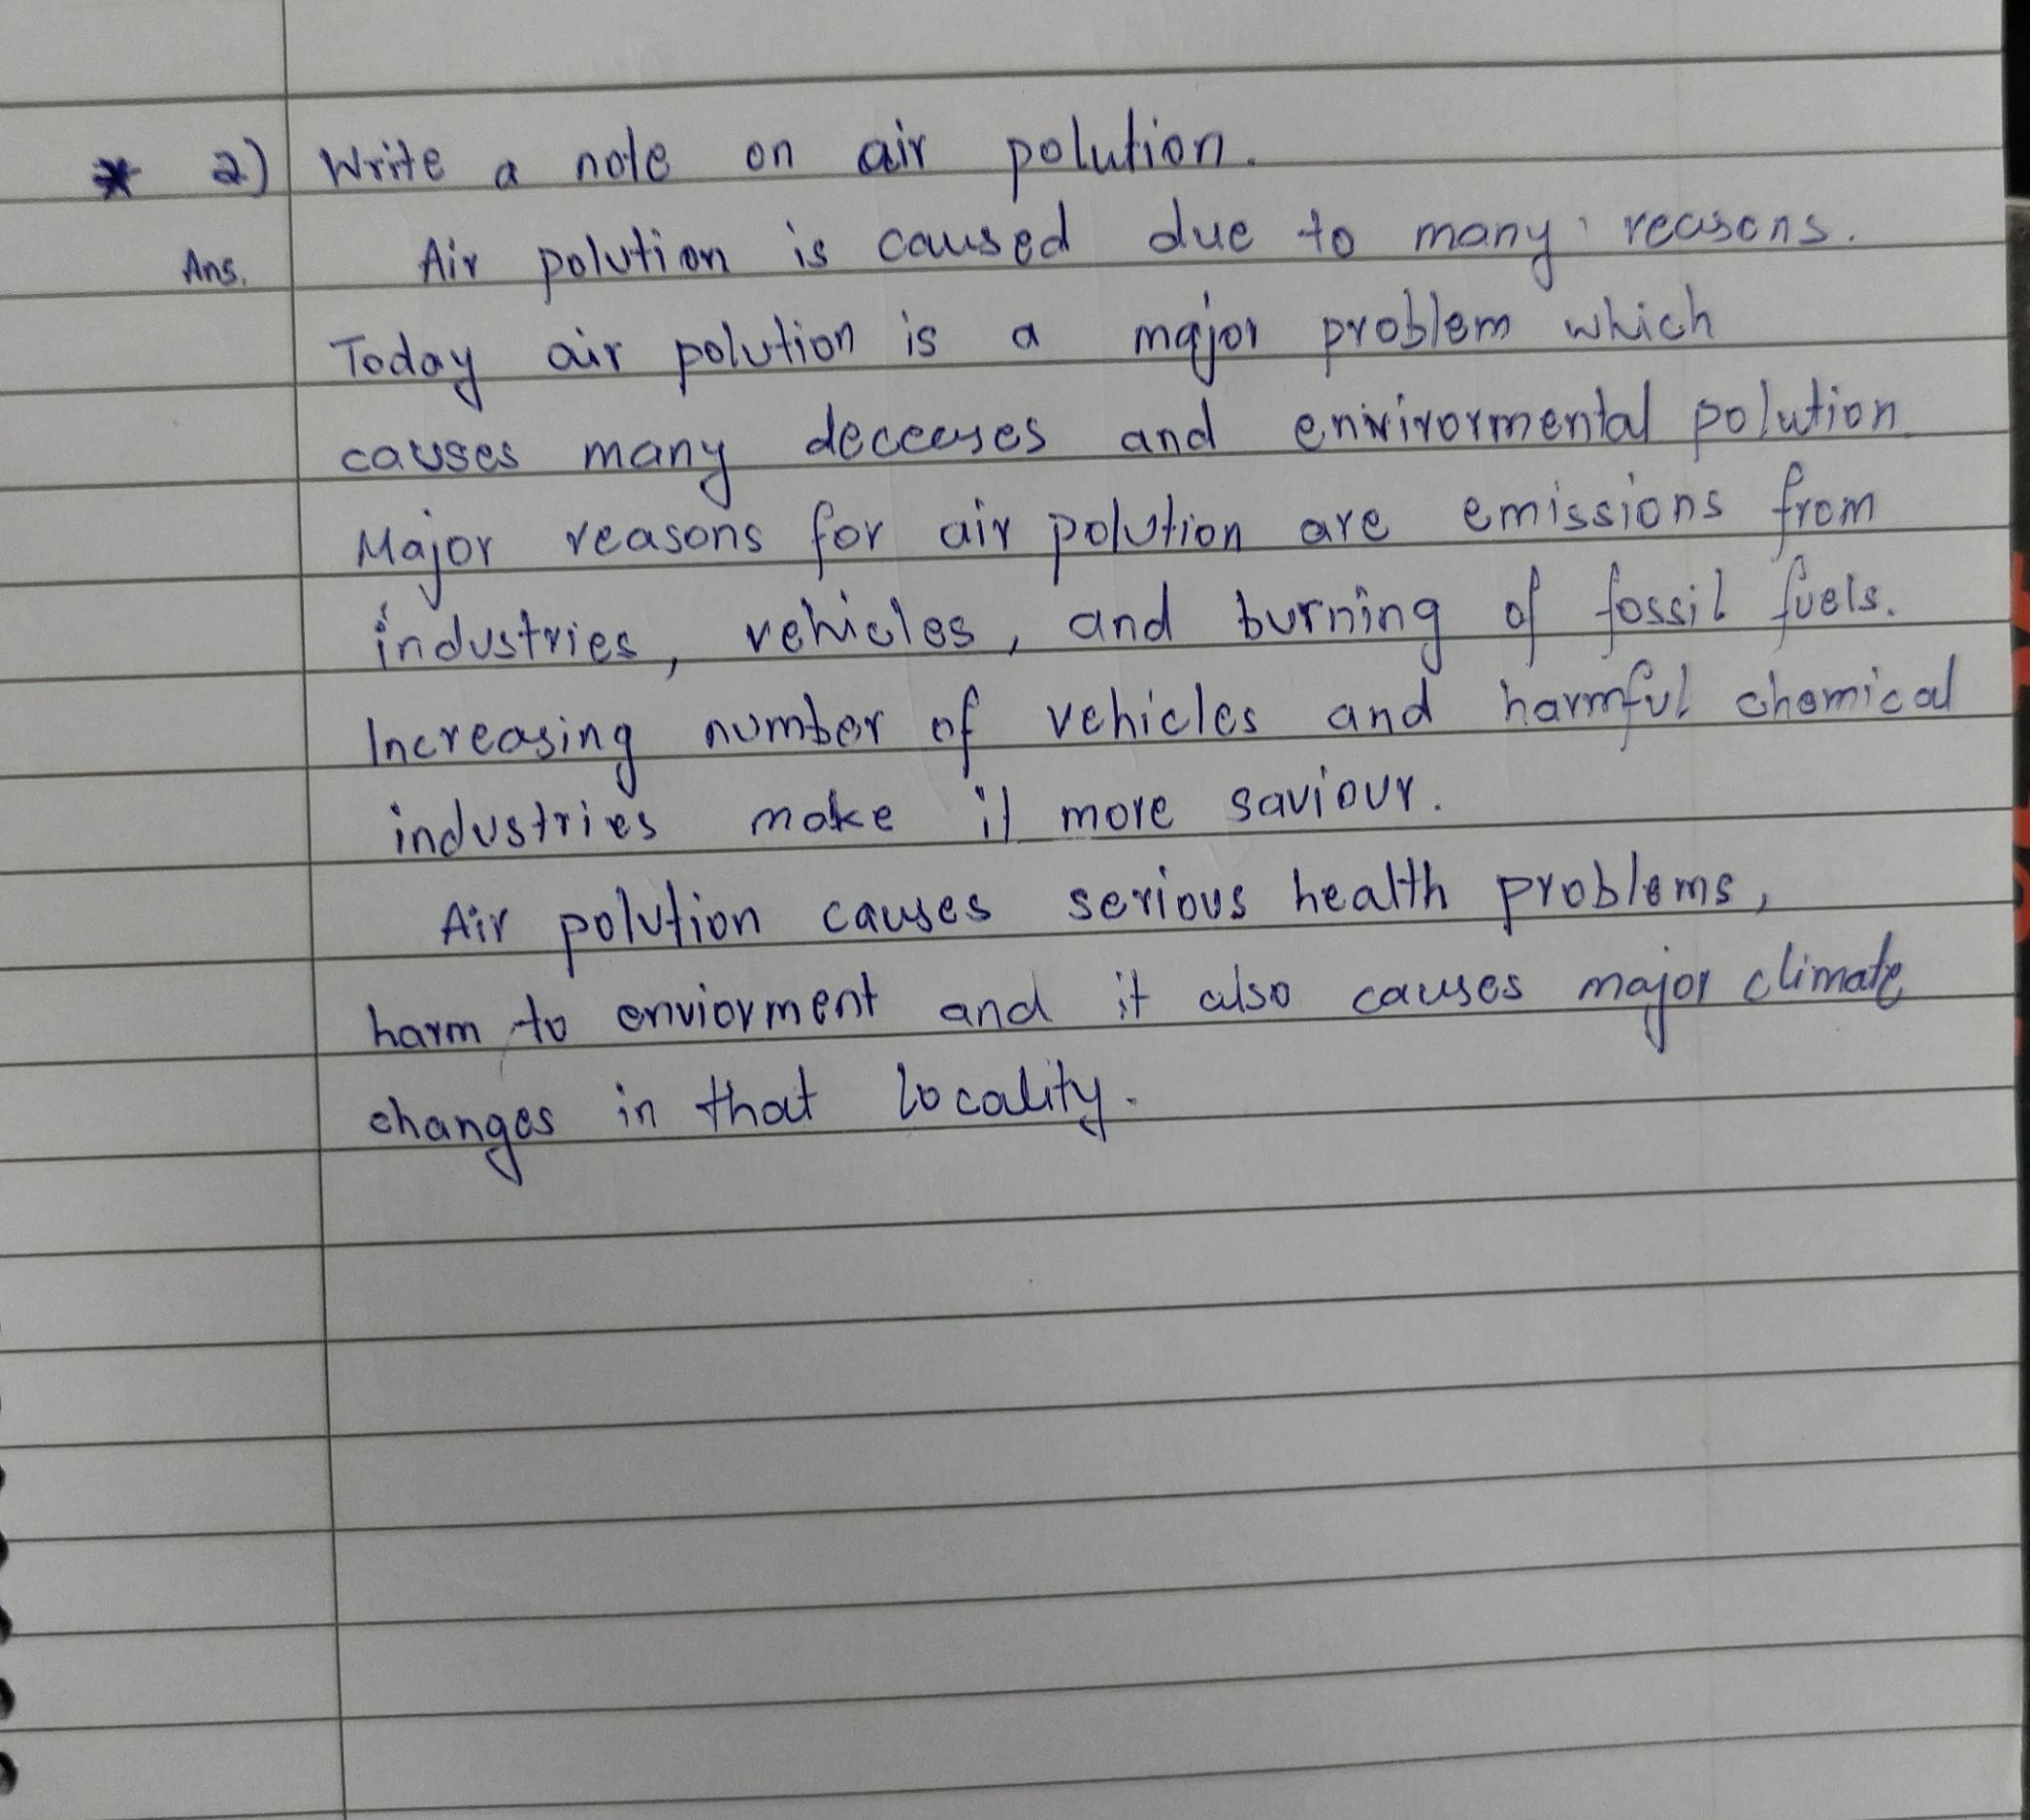 * 2) Write a note on air polution.
Ans. Air polution is caused due to many reasons.
Today air polution is a major problem which
causes many deceeses and envirormental polution
Major reasons for air polution are emissions from
industries, vehicles, and burning of fossil fuels.
Increasing number of vehicles and harmful chemical
industries make it more saviour.
Air polution causes serious health problems,
harm to enviorment and it also causes major climate
changes in that locality.